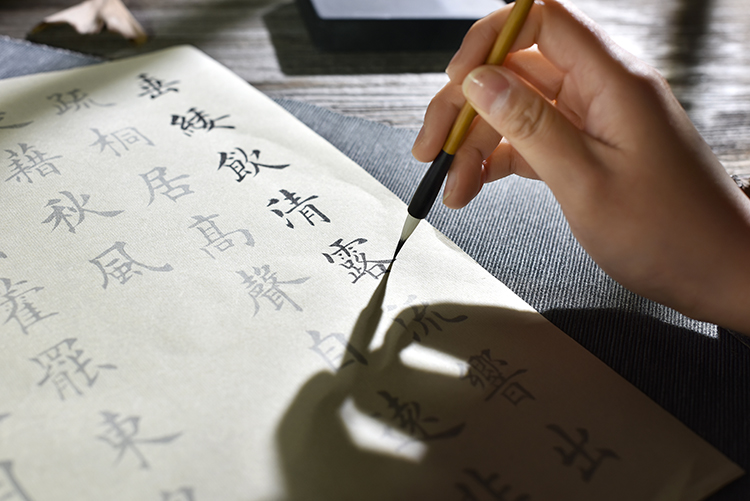 垂緌飲清露流響出
疏桐居高聲自遠非
藉秋風
罷東